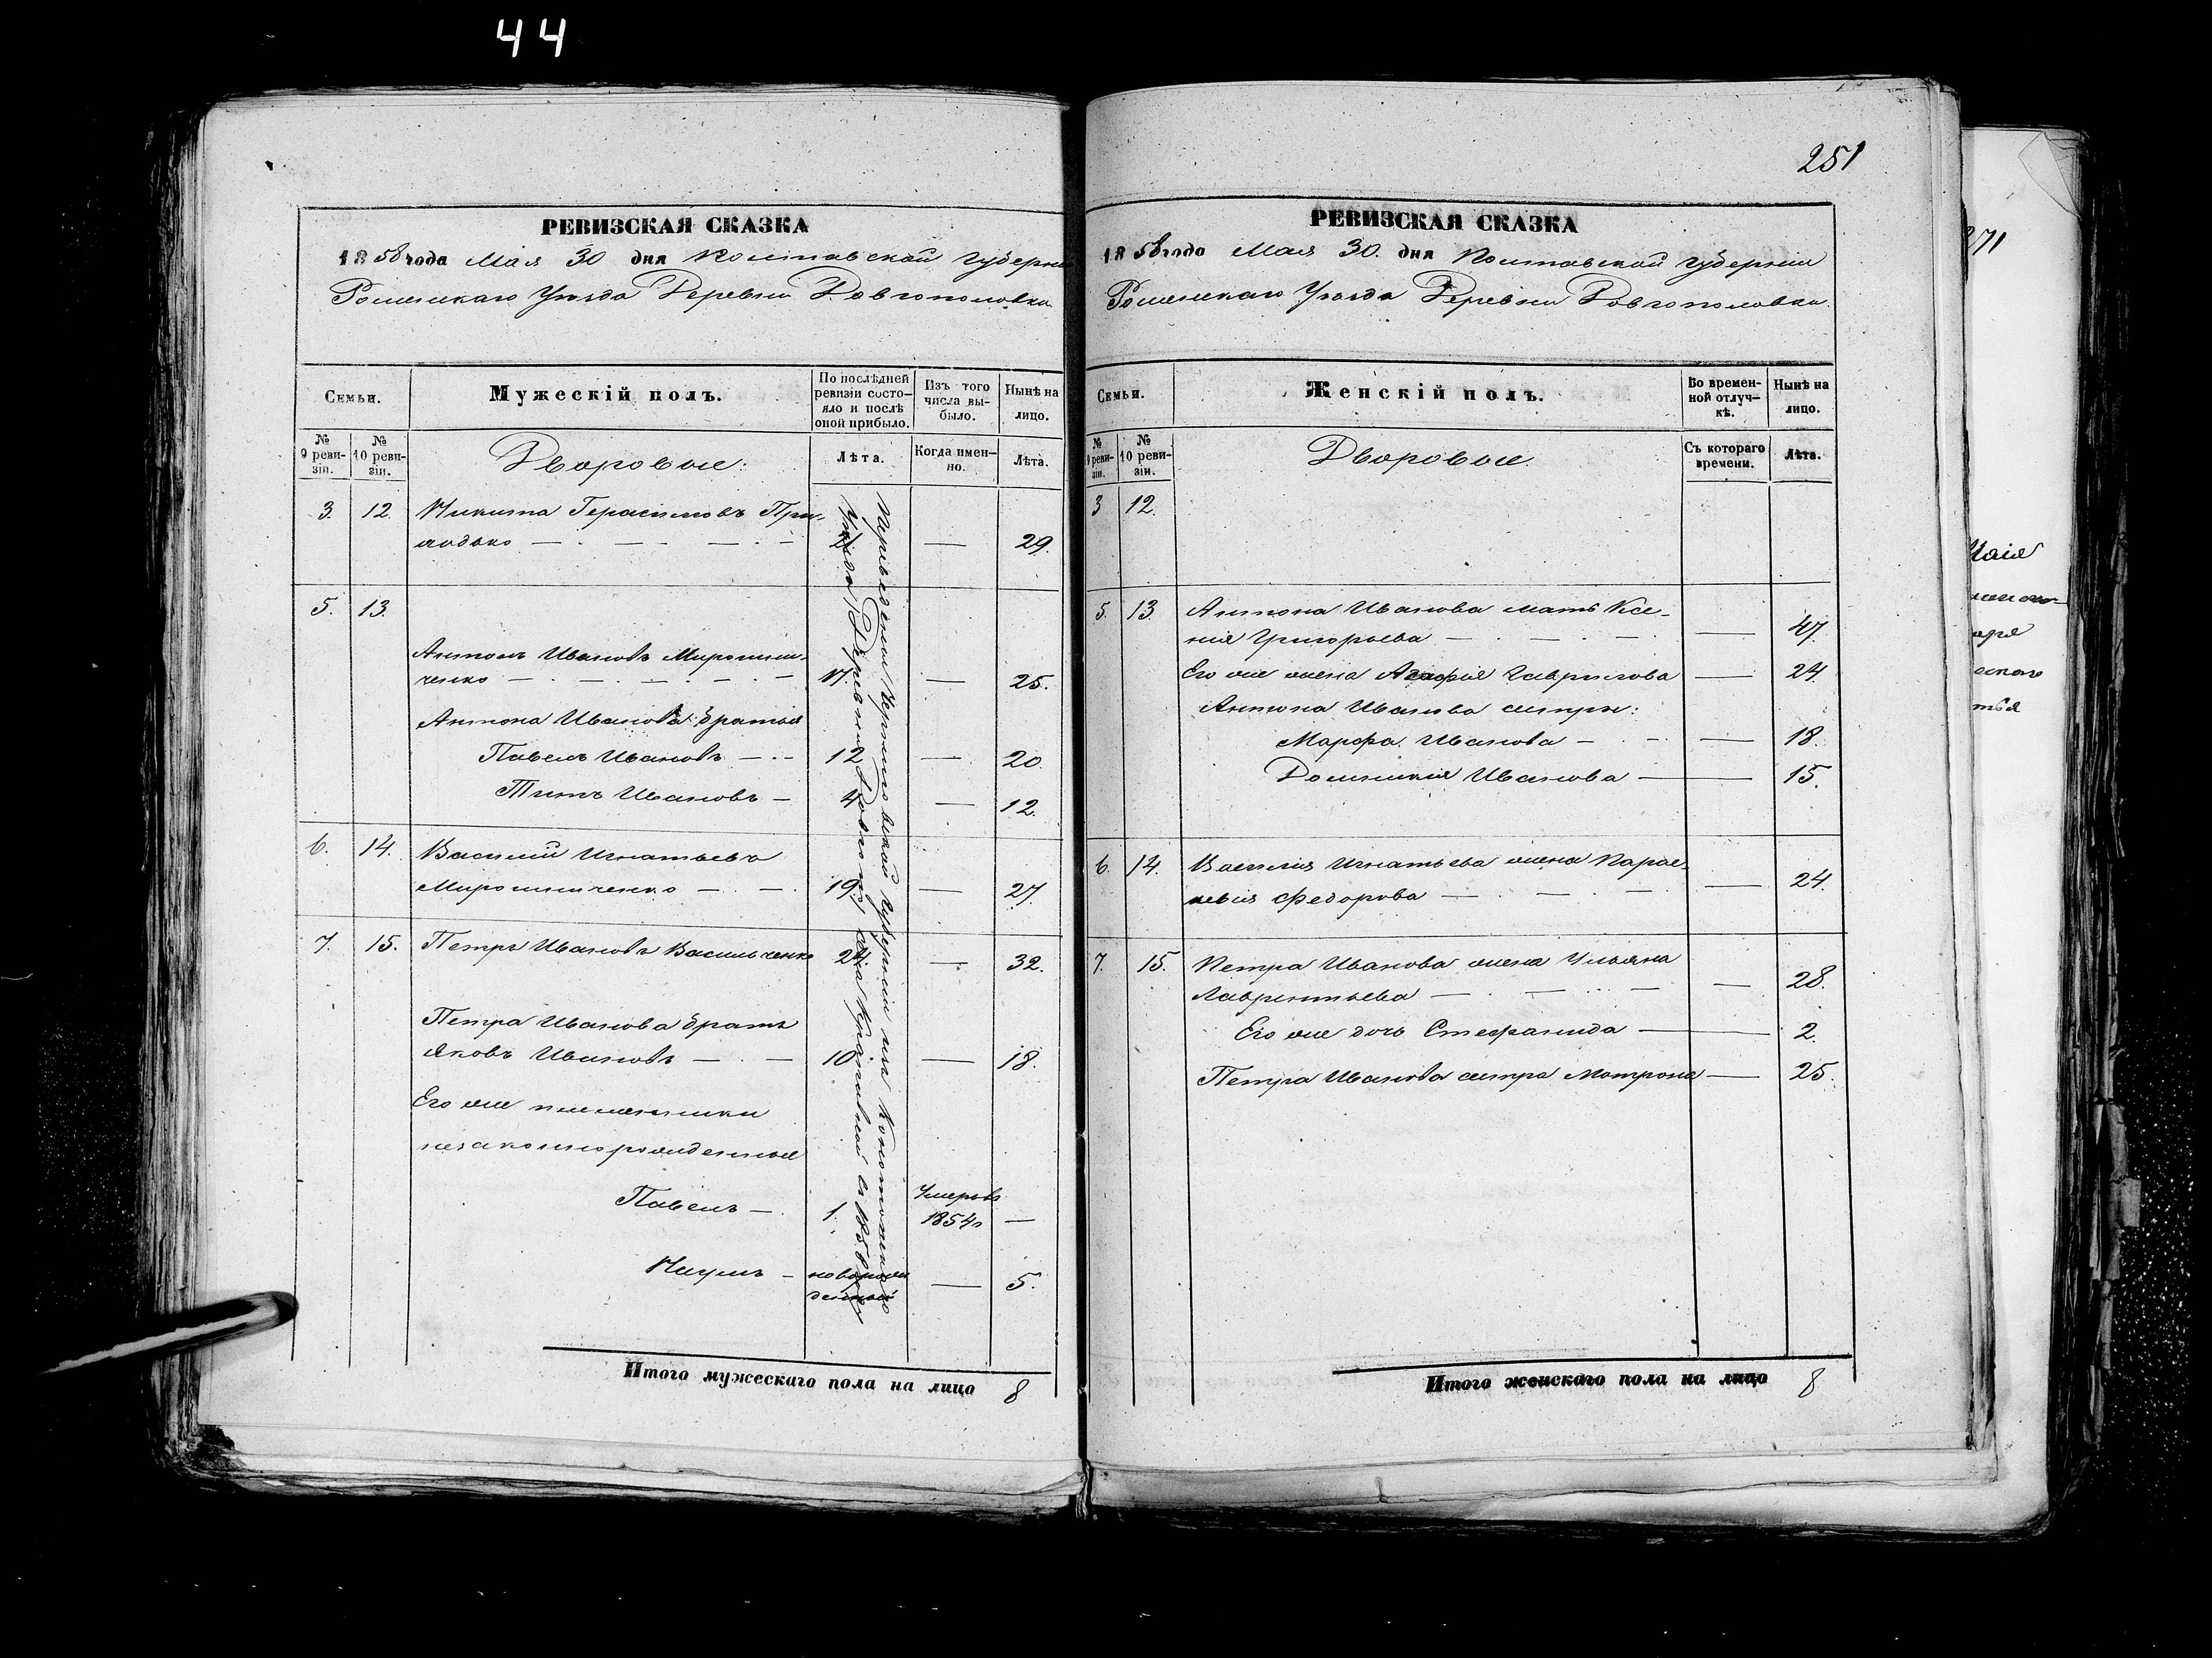 44
251
РЕВИЗСКАЯ СКАЗКА
1858 года Мая 30 дня Полтавской губерни
Роменскаго Уезда Деревни Довгополовки
Семьи.
Мужескій полъ.
По послѣдней ревизіи состояло и послѣ оной прибыло.
Изъ того числа выбыло.
Нынѣ на лицо.
№ 9 ревизіи.
№ 10 ревизіи.
Дворовые:
Лѣта.
Когда именно.
Лѣта.
3. 12. Никита Герасимовъ При-
ходько — — — 29.
5. 13.
Антонъ Ивановъ Мирошни-
ченко — — — 17. — 25.
Антона Иванова братья
Павелъ Ивановъ — 12 — 20.
Титъ Ивановъ — 4 — 12.
6. 14. Василий Игнатьевъ
Мирошниченко — 19. — 27.
7. 15. Петръ Ивановъ Васильченко 24. — 32.
Петра Иванова братъ
Яковъ Ивановъ — 10 — 18.
Его же племянники
незаконнорожденные
Павелъ — 1. Умеръ въ
1854г —
Наумъ — новорож
денный — 5.
Переведены Черниговской губернии изъ Конотопскаго
Уезда, Деревни
1850
Итого мужескаго пола на лицо 8
РЕВИЗСКАЯ СКАЗКА
1858 года Мая 30. дня Полтавской губернии
Роменскаго Уезда Деревни Довгополовки.
Семьи.
Женскій полъ.
Во временной отлучкѣ.
Нынѣ на лицо.
№ 9 ревизіи.
№ 10 ревизіи.
Дворовые.
Съ котораго времени.
Лѣта.
3 12.
5. 13. Антона Иванова мать Ксе-
ния Григорьева — — 47.
Его же жена Агафия Гаврилова — 24
Антона Иванова сестры:
Марфа Иванова — — 18.
Домникия Иванова — — 15.
6. 14. Василия Игнатьева жена Парас-
кевия Федорова — — 24.
7. 15. Петра Иванова жена Ульяна
Лаврентьева — — 28.
Его же дочь Стефанида — 2.
Петра Иванова сестра Мотрона — 25.
Итого женскаго пола на лицо 8
271